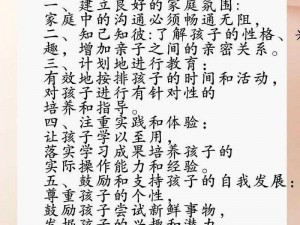 一、建立良好的家庭氛围:
家庭中的沟通必须畅通无阻,
二、知己知彼:了解孩子的性格、兴
趣,增加亲子之间的亲密关系。
三、计划地进行教育:
有效地按排孩子的时间和活动,
对孩子进行有针对性的
培养和指导。
四、注重实践和体验:
让孩子学以至用,
落实学习成果培养孩子的
实际操作能力和经验。
五、鼓励和支持孩子的自我发展:
尊重孩子的个性,
鼓励孩子尝试新鲜事物,
发掘孩子的兴趣和潜力